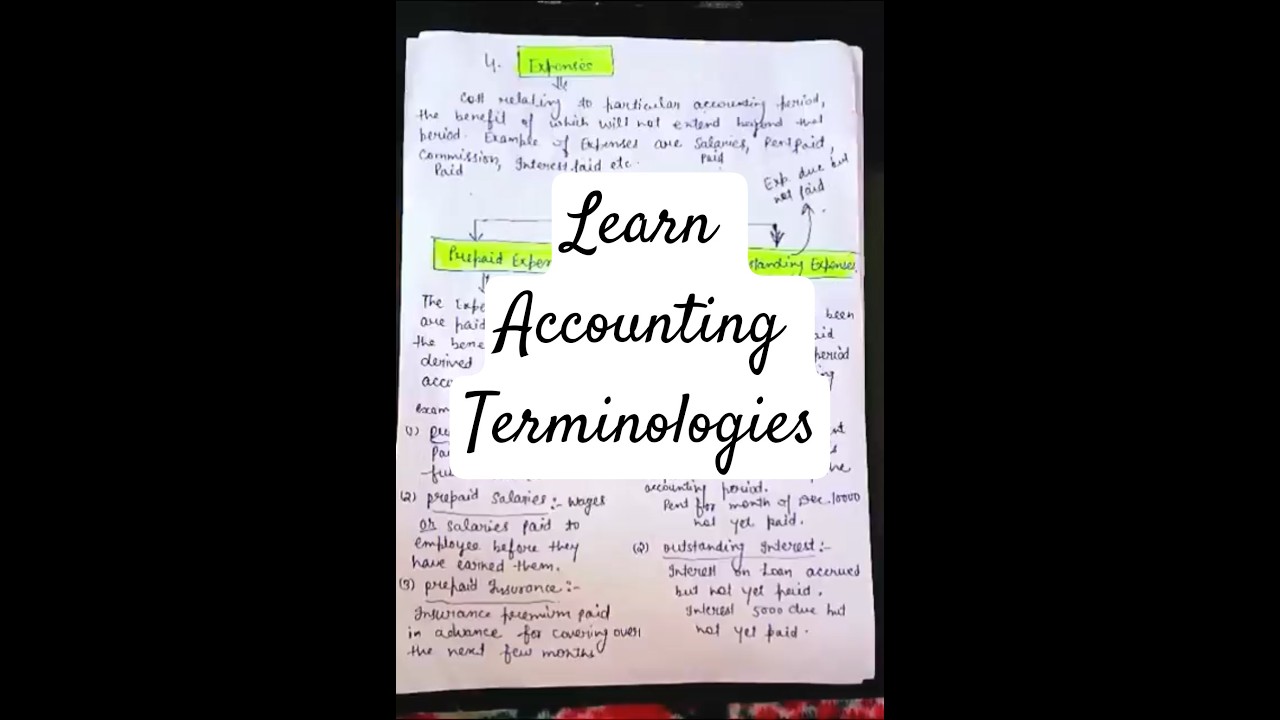 4. Expenses
Cost relating to particular accounting period,
the benefit of which will not extend beyond that
period. Example of Expenses are Salaries, Rent paid,
Paid
Commission, Interest paid etc.
Paid
Exp. due but
not paid
Learn
Accounting
Terminologies
Prepaid Expen
standing Expenses
The Expe
are paid
the bene
derived
acco
been
aid
period
ing
exam
(1) pre
pa
fu
nt
s
he
accounting period.
Rent for month of Dec. 10000
not yet paid.
(2) prepaid Salaries:- wages
or salaries paid to
employee before they
have earned them.
(3) prepaid Insurance:-
Insurance premium paid
in advance for covering over
the next few months
(2) outstanding Interest:-
Interest on Loan accrued
but not yet paid.
Interest 5000 due but
not yet paid.